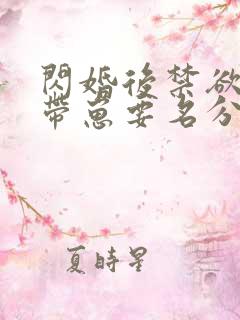 閃婚後禁欲
帶崽要名分
夏時星